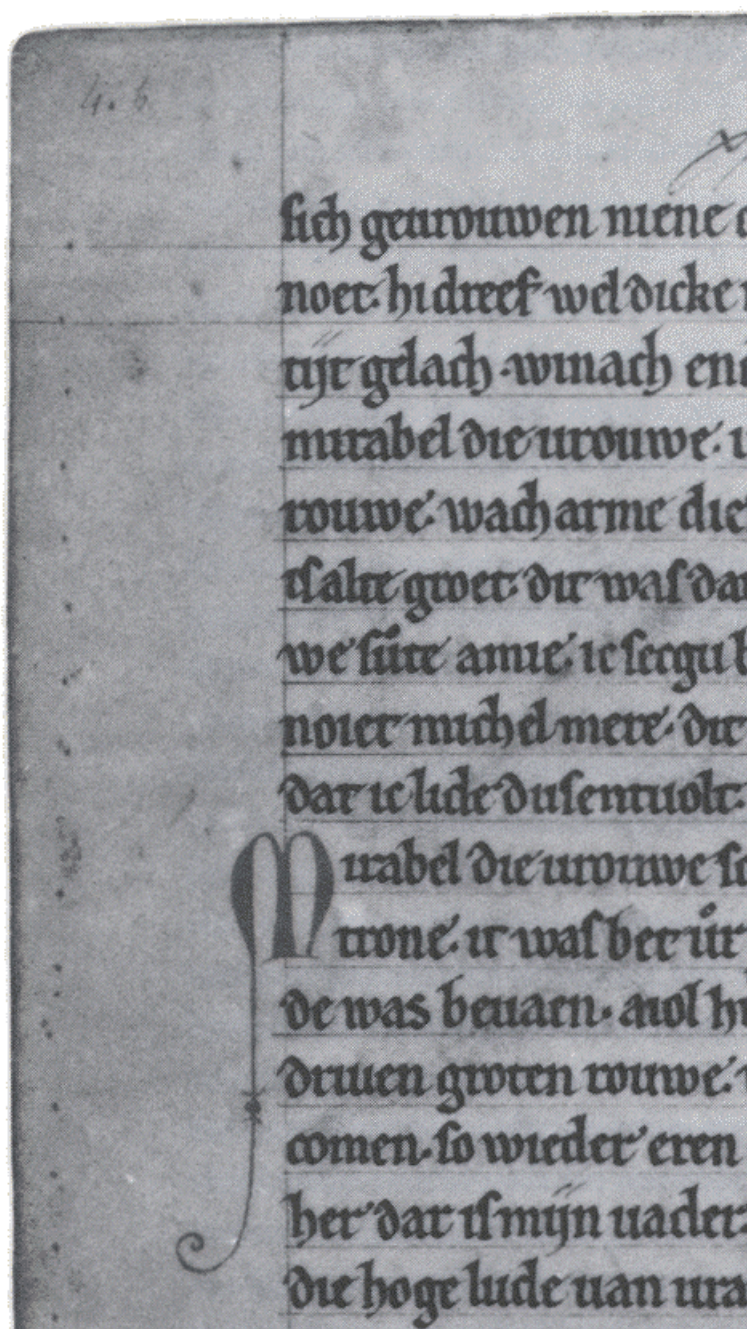 ſich geurouwen niene
noet. hi dreef wel dicke
tijt gelach. winach
mirabel die urouwe.
rouwe. wach arme die
groet. dit waſ
we ſůte amie. ic ſecgu
noiet michel mere. dit
dat ic lide duſentuolt.
Mirabel die urouwe
trone. it waſ bet
de was beuaen. aiol
driuen groten rouwe.
comen. ſo wieder eren
her dat iſ mijn uader
die hoge lude uan